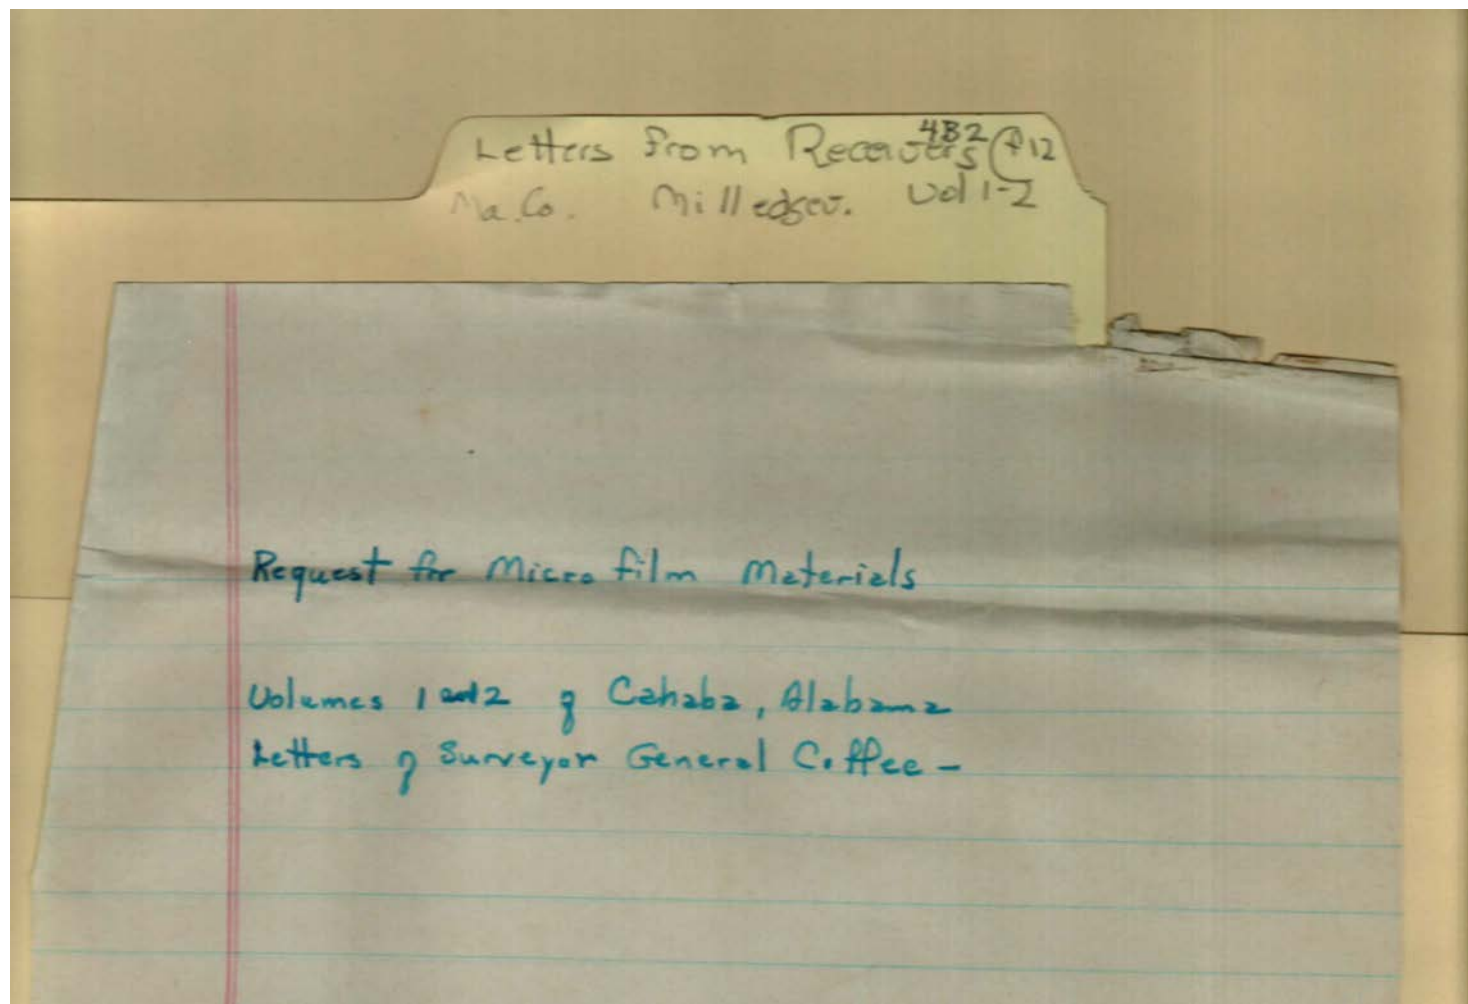 4B2
Letters from Receivers F12
Ma.Co. Milledgev. Vol 1-2
Request for Micro film Materials
Volumes 1 and 2 of Cahaba, Alabama
Letters of Surveyor General Coffee -